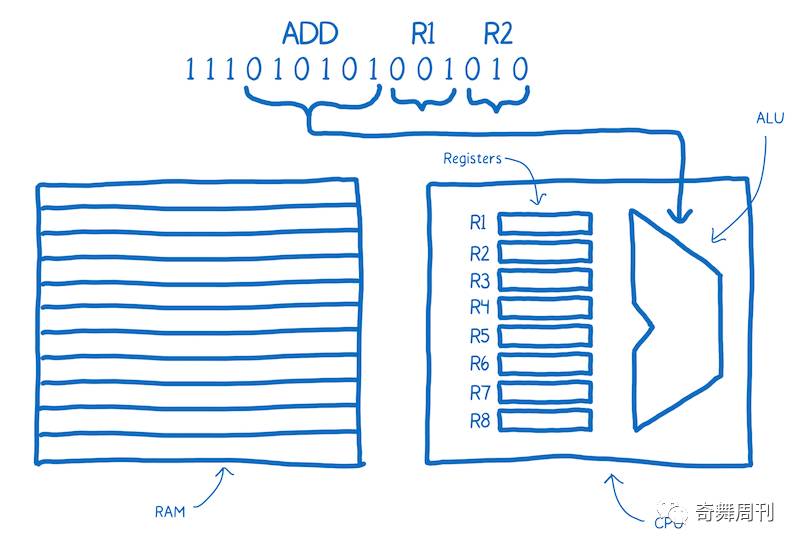 ADD R1 R2
11101010100 1010
ALU
Registers
R1
R2
R3
R4
R5
R6
R7
R8
RAM
CPU
奇舞周刊